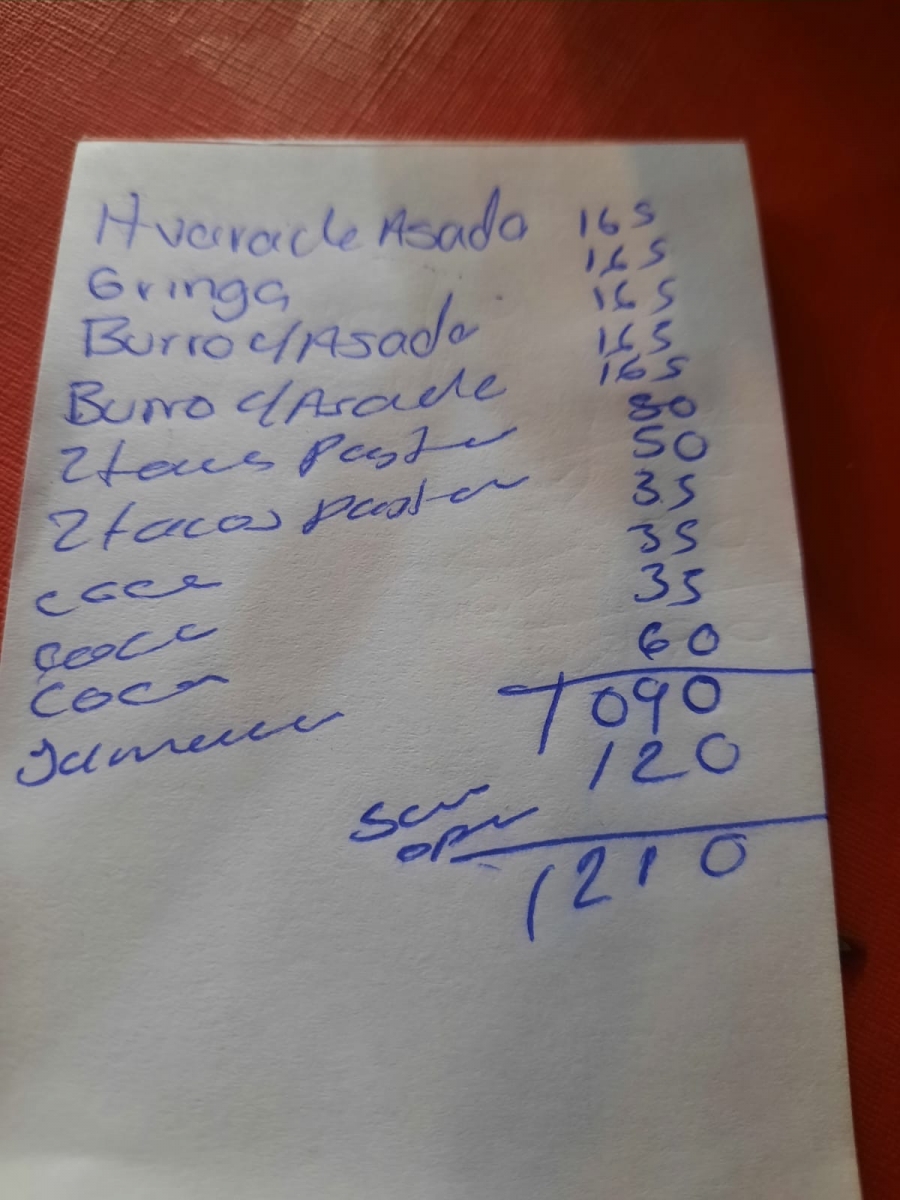 Huarache Asada 165
Gringa 165
Burro c/Asada 165
Burro c/Asada 165
2 tacos Pastor 165
2 tacos pastor 50
coca 50
coca 35
Coca 35
Jamaica 35
60
1090
120
1210